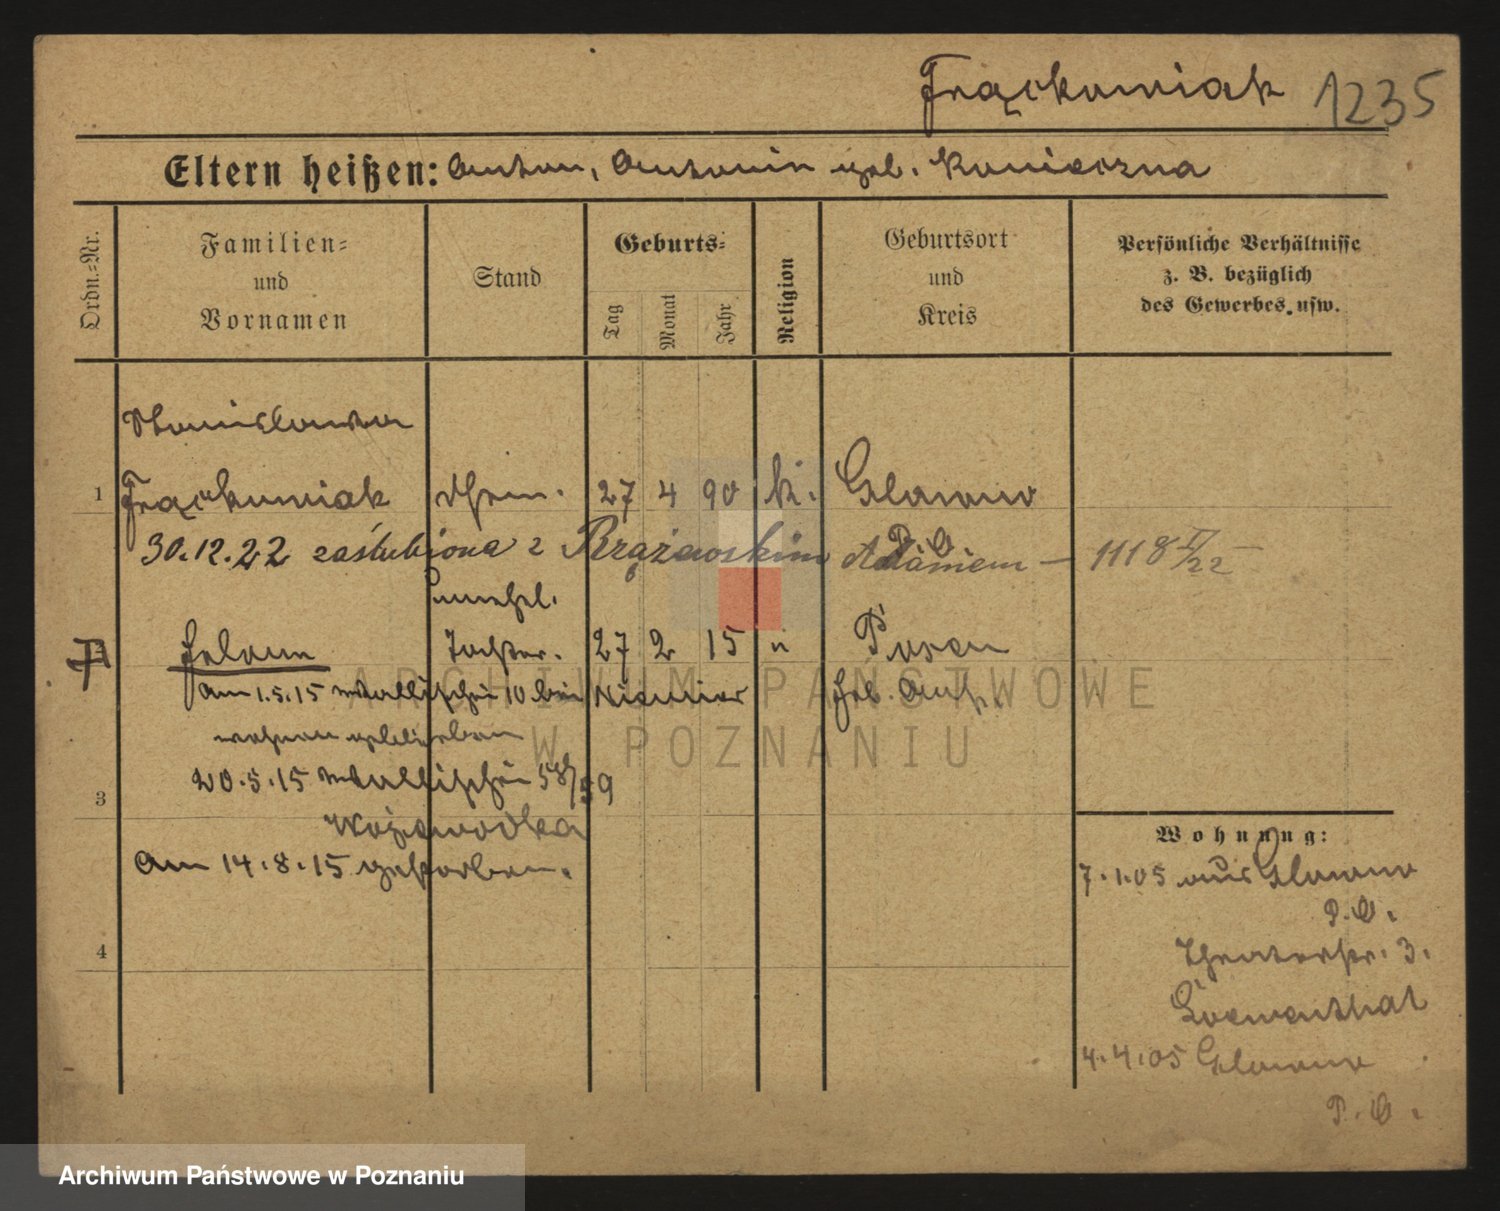 Frąckowiak 1235
Eltern heißen: Anton, Antonin geb. Konieczna
Ordn.=Nr.
Familien=
und
Vornamen
Stand
Geburts=
Tag
Monat
Jahr
Religion
Geburtsort
und
Kreis
Persönliche Verhältnisse
z. B. bezüglich
des Gewerbes. usw.
Stanislawa
1 Frąckowiak 27 4 90 k. Glowno
P. O.
30.12.22 zaślubiona z Adamem — 1118 V/22 —
unehel.
Helene Tochter. 27 2 15 " Posen
Am 1.5.15 Wallischei 10 bei Niemier Heb. Anst.
wohnen geblieben
20.5.15 Wallischei 58/59
3
Am 14.8.15 gestorben.
4
Wohnung:
7.1.05 aus Glowno
P. O.
Theaterstr. 3.
Loewenthal
4.4.05 Glowno
P. O.
ARCHIWUM PAŃSTWOWE
W POZNANIU
Archiwum Państwowe w Poznaniu